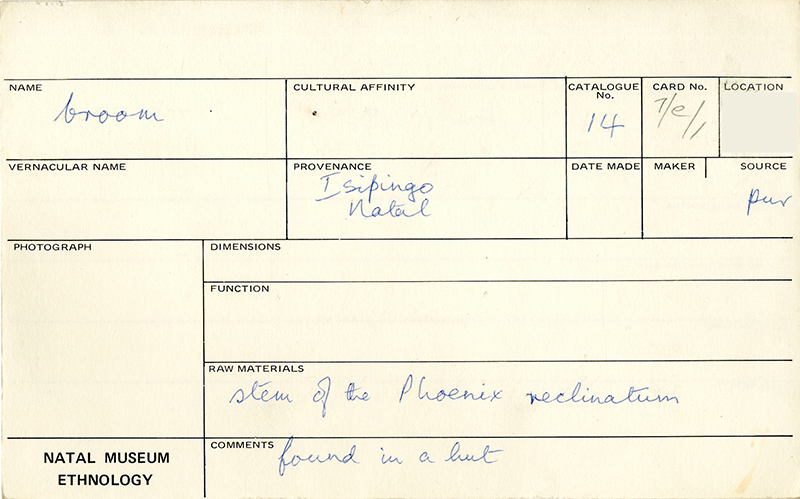 NAME
broom
CULTURAL AFFINITY
CATALOGUE No.
14
CARD No.
7/e/1
LOCATION
VERNACULAR NAME
PROVENANCE
Isipingo
Natal
DATE MADE
MAKER
SOURCE
pur
PHOTOGRAPH
DIMENSIONS
FUNCTION
RAW MATERIALS
stem of the Phoenix reclinatum
NATAL MUSEUM
ETHNOLOGY
COMMENTS
found in a hut